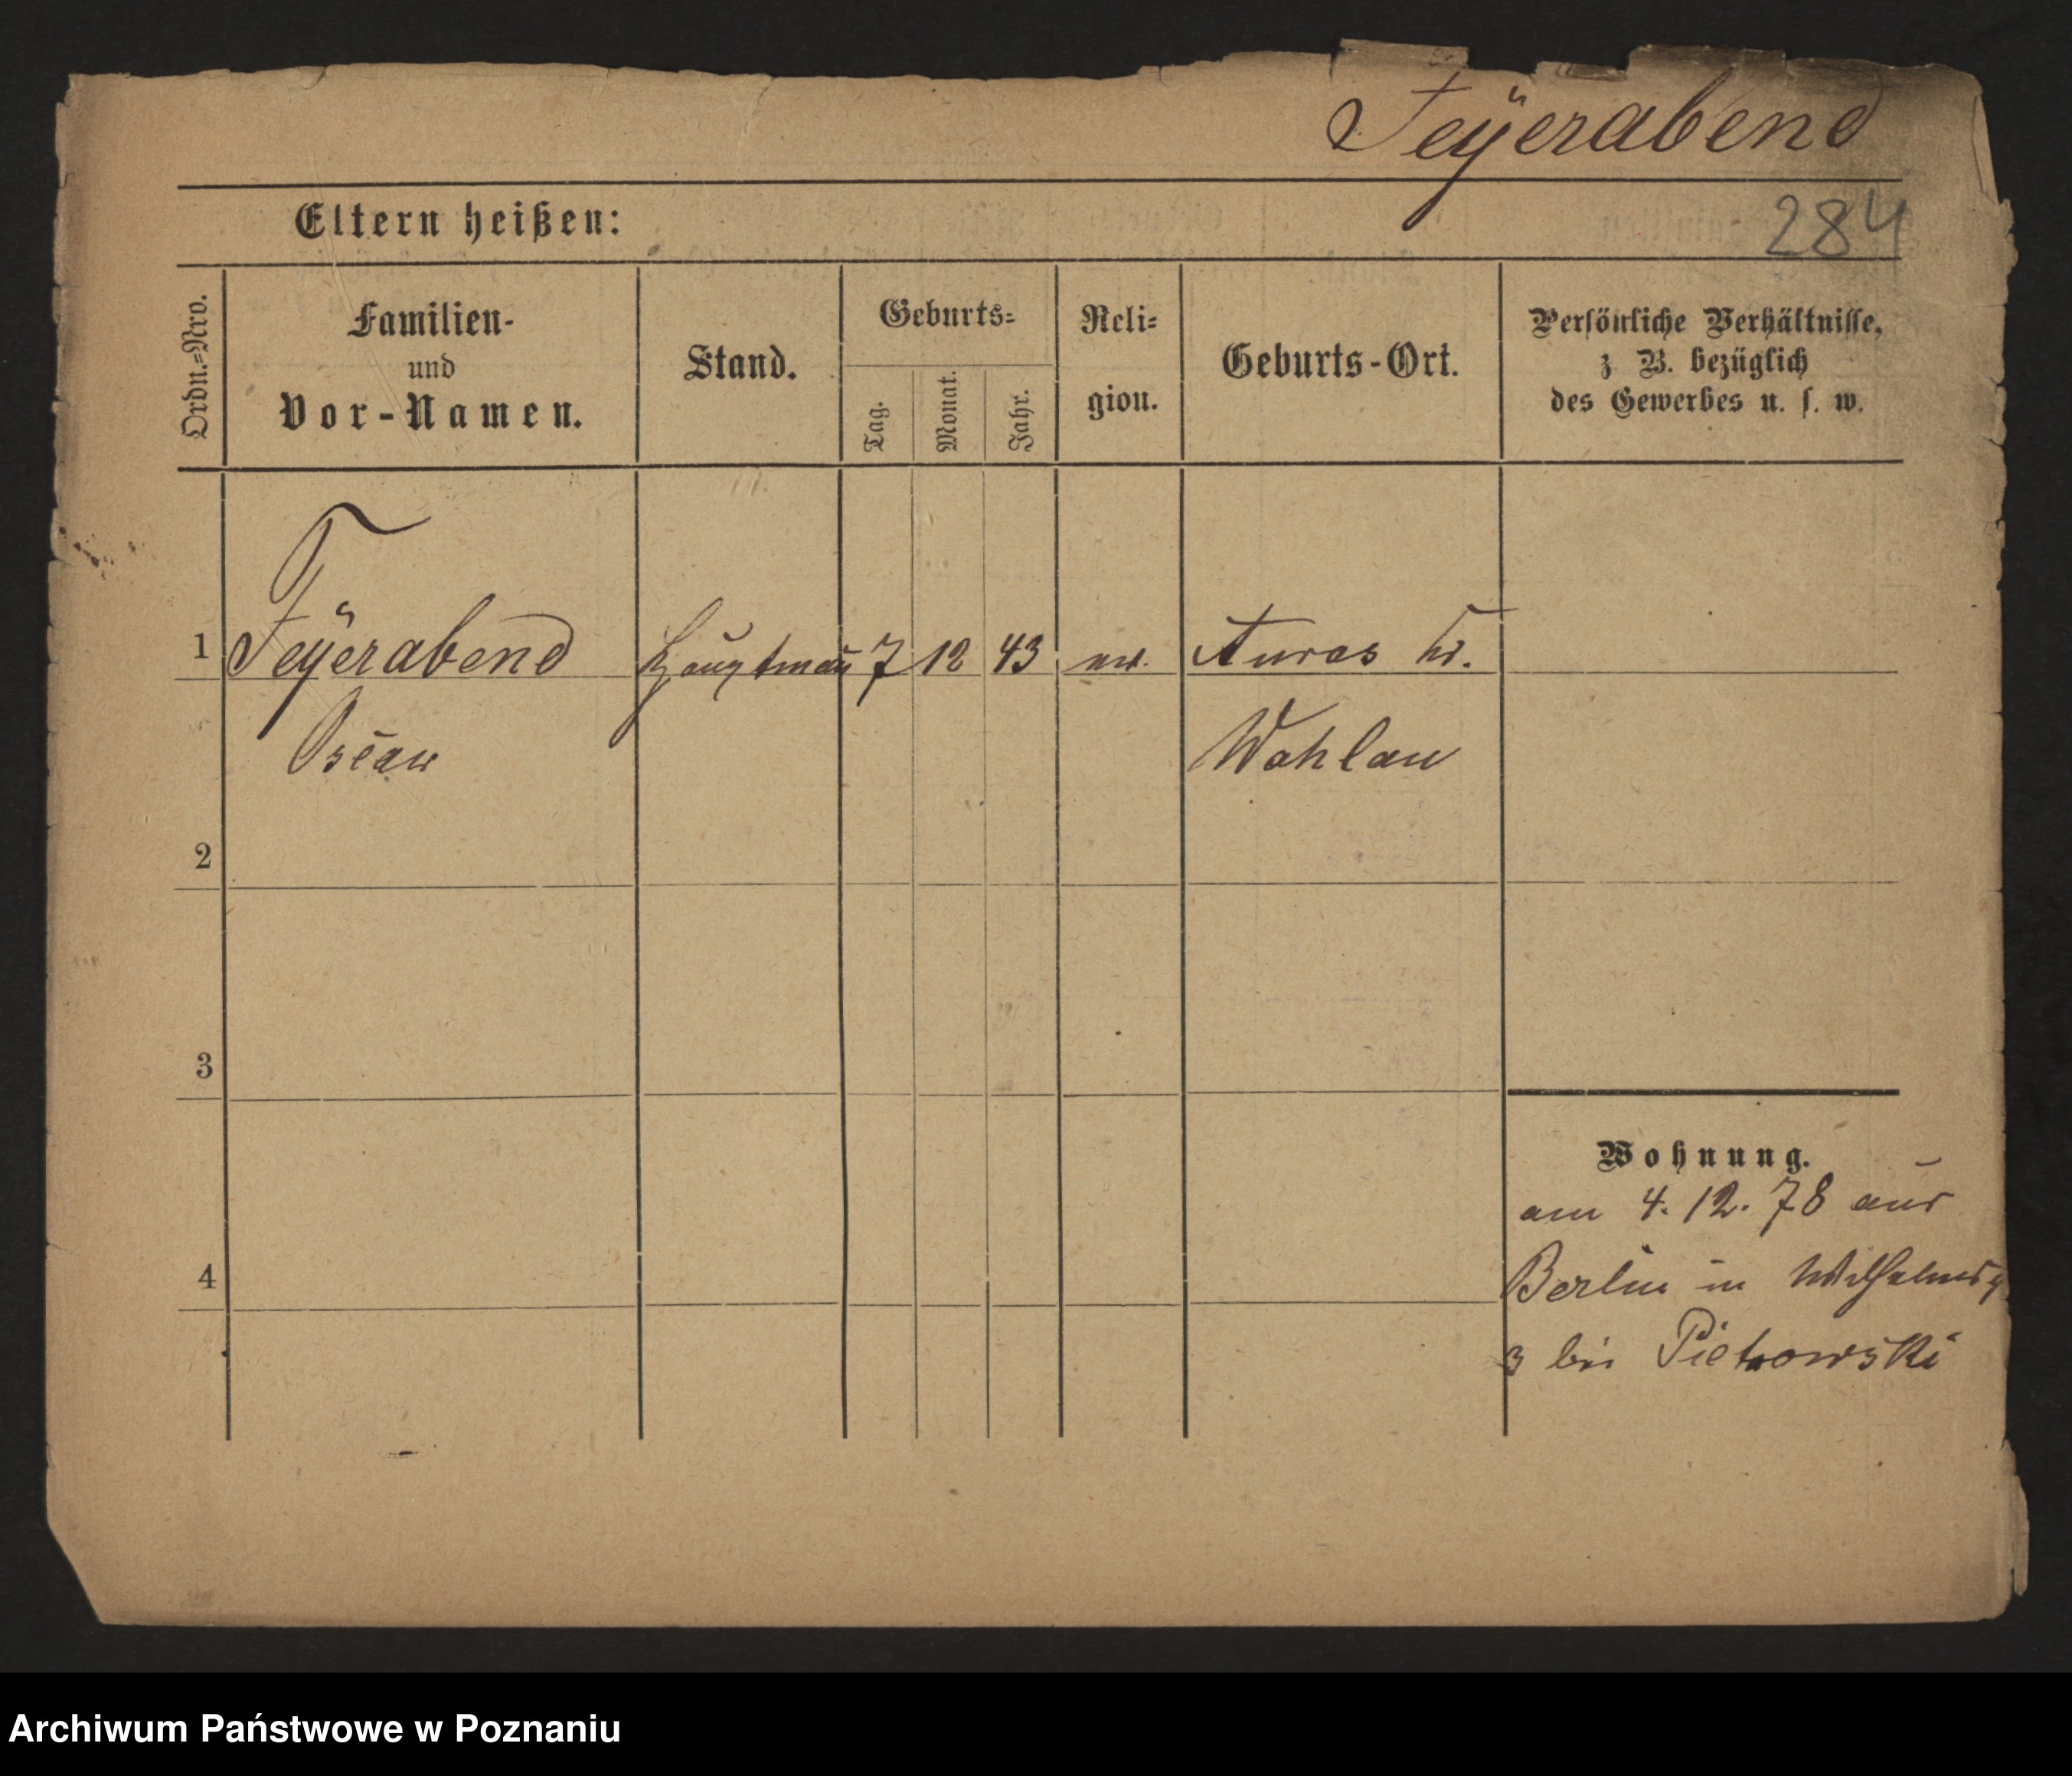 Feÿerabend
284
Eltern heißen:
Ordn.=Nro.
Familien-
und
Vor-Namen.
Stand.
Geburts=
Tag.
Monat.
Jahr.
Reli=
gion.
Geburts-Ort.
Persönliche Verhältnisse,
z B. bezüglich
des Gewerbes u. s. w.
1 Feÿerabend Hauptmañ 7 12 43 ev. Auras Kr.
Oscar Wohlau
2
3
4
Wohnung.
am 4. 12. 78 aus
Berlin in
3 bei Pietrowski
Archiwum Państwowe w Poznaniu